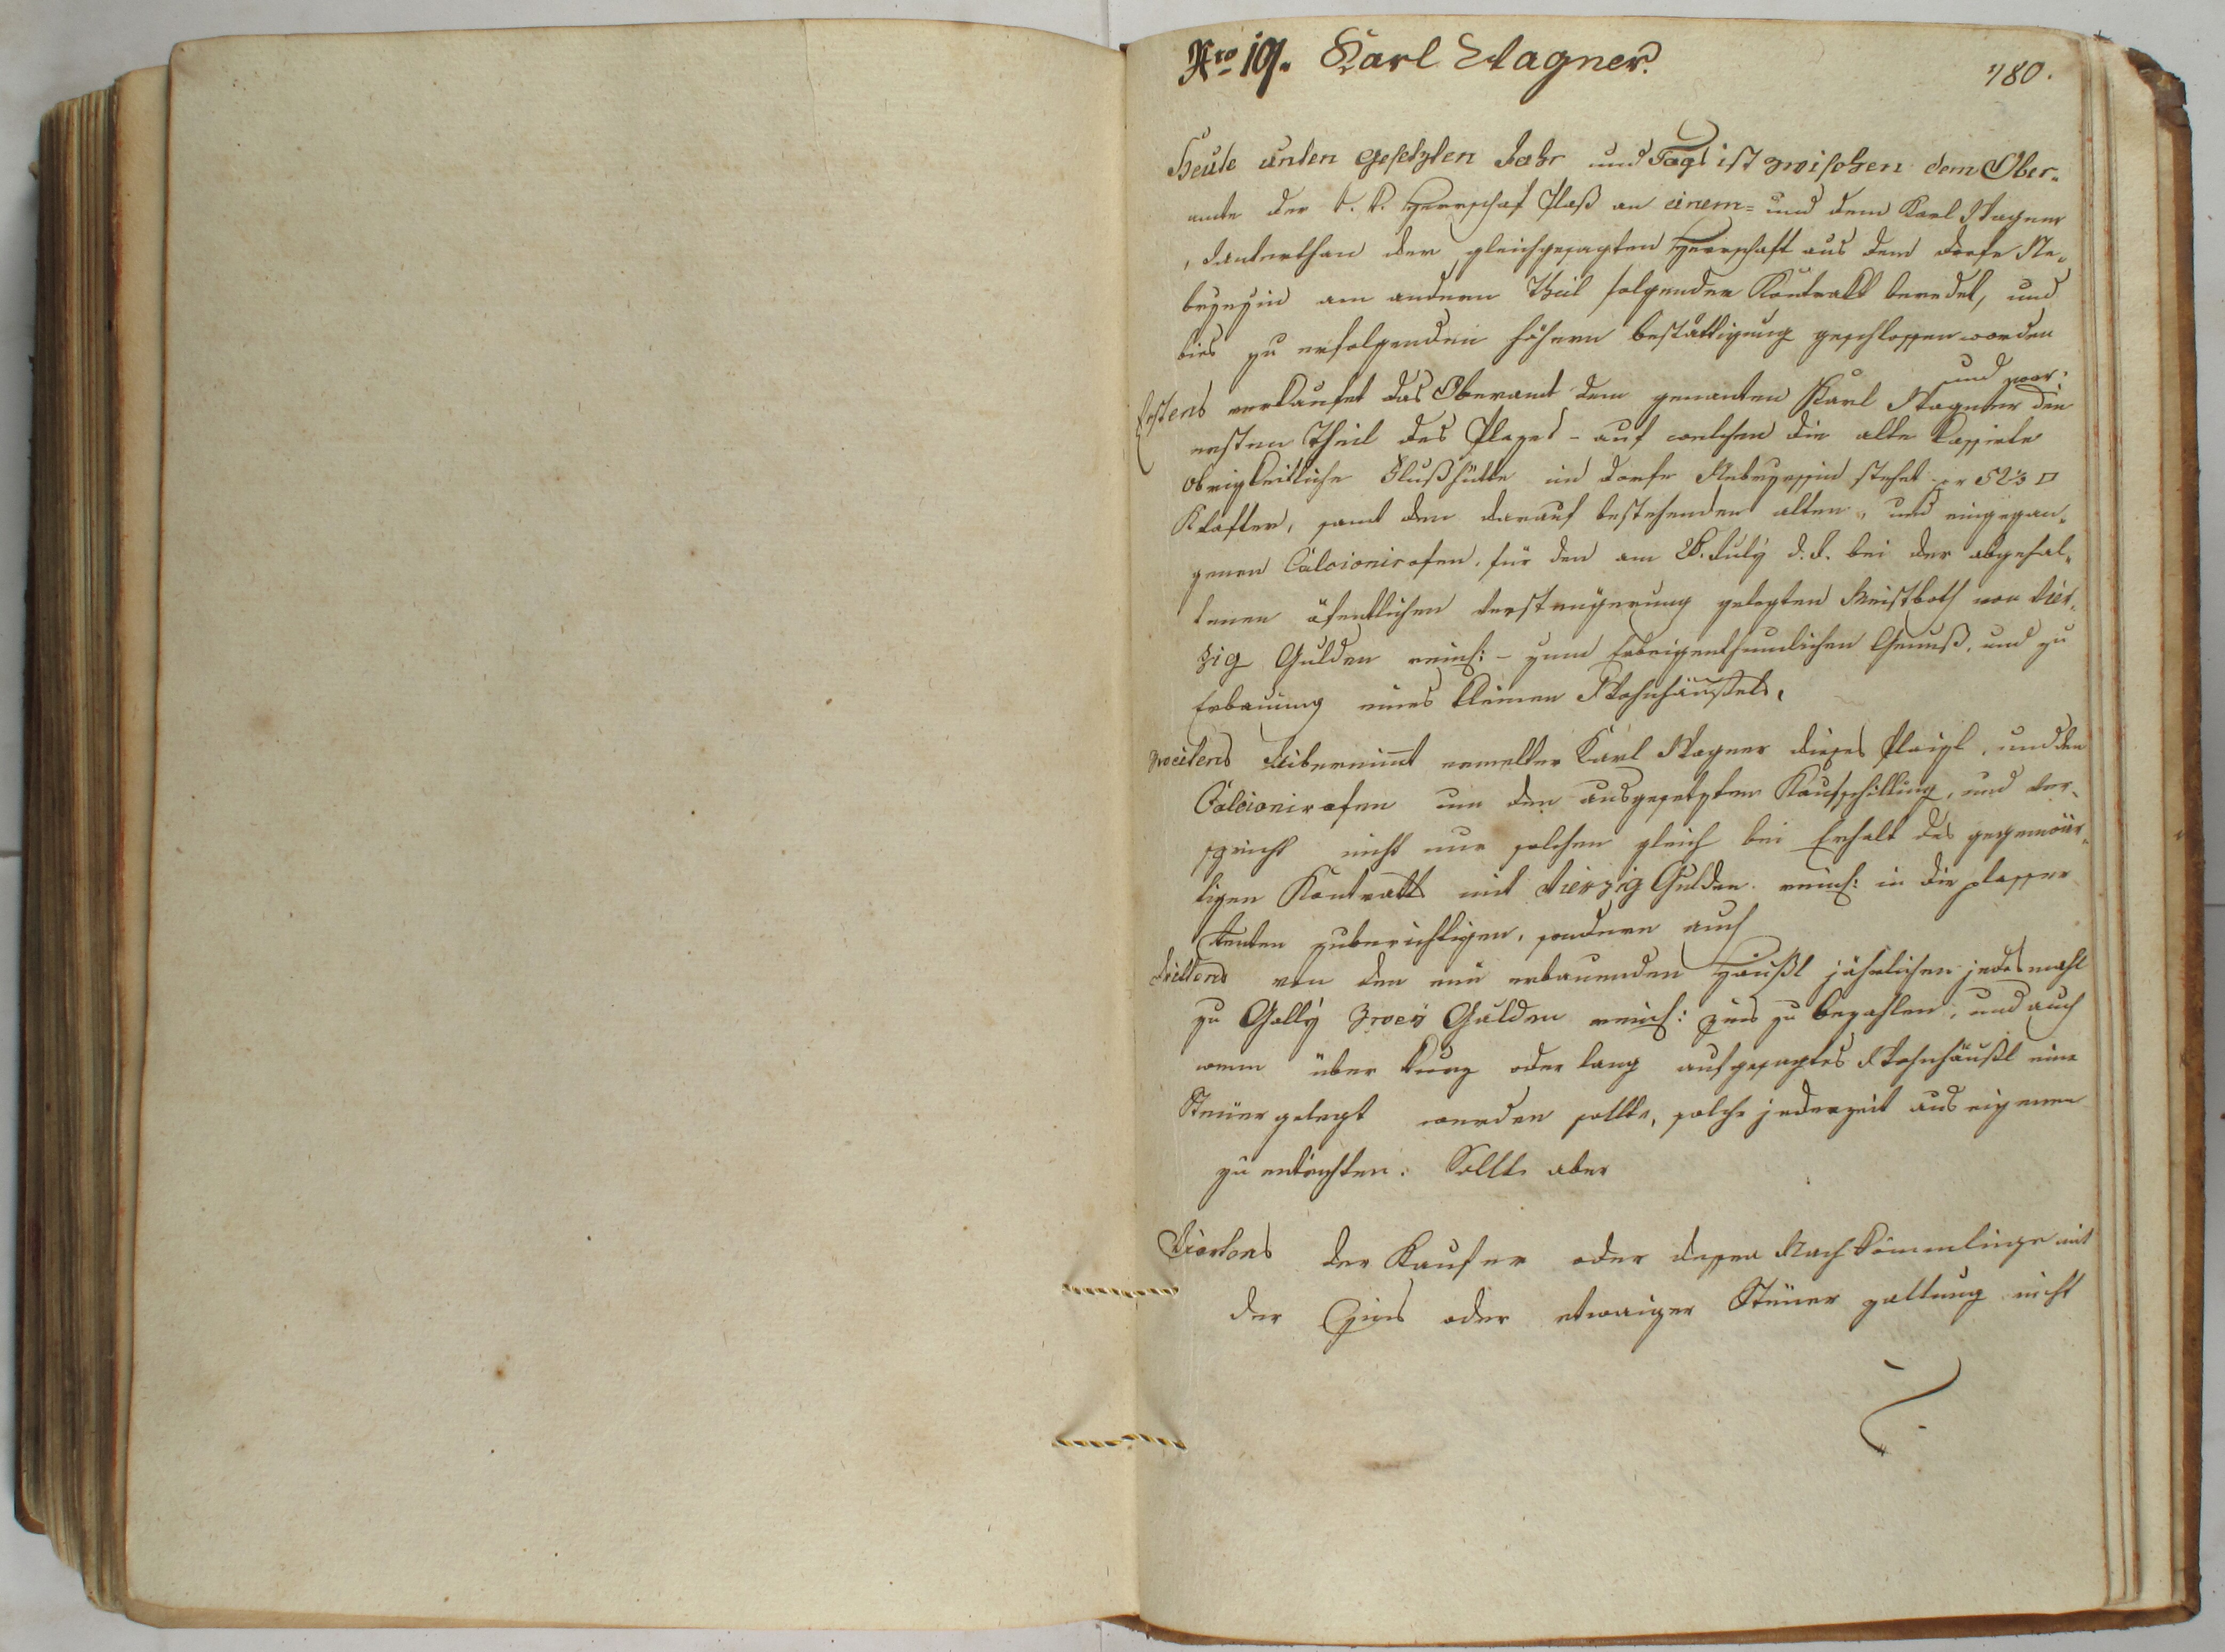 Nro 19. Karl Wagner.
180.
Heute unten gesetzten Jahr und Tags ist zwischen dem Ober-
amte der k. k. Herrschaf Plaß an einem= und dem Karl Wagner
Unterthan der gleichgesagten Herrschaft aus dem dorfe Ne-
brzezin am andern Theil folgender Kontrakt beredet, und
bies zu erfolgenden höhern bestättigung geschlossen worden
und zwar:
Erstens verkaufet das Oberamt dem genanten Karl Wagner den
ersten Theil des Plazes - auf welchen die alte kassirte
obrigkeitliche Flußhütte im dorfe Nebrzessin stehet pr 52⅓ □
Klafter, samt den darauf bestehenden alten, und eingegan-
genen Calcionirofen, für den am 28. July d. J. bei der abgehal-
tenen öfentlichen Versteugerung gelegten Meistboth von Vier-
zig Gulden reinsch: - zum Erbeigenthumlichen Genuß, und zu
Erbauung eines kleinen Wohnhäußels.
Zweitens Uibernimt ermelter Karl Wagner dieses Plaizl, und den
Calcionirofen um den ausgesetzten Kaufschilling, und ver-
spricht nicht nur solchen gleich bei Erhalt des gegenwär-
tigen Kontrakts mit Vierzig Gulden reinsch: in die plasser
Renten zuberichtigen, sondern auch
Drittens von den neu erbauenden Häußl jährlichen jedesmahl
zu Gally Zwey Gulden reinsch: zins zu bezahlen, und auch
wenn über kurz oder lang auf gesagtes Wohnhäußl eine
Steuer gelegt werden sollte, solche jederzeit aus eigenen
zu entrichten. Sollte aber
Viertens der Kaufer oder dessen Nachkömmlinge mit
der Zins oder etwaiger Steuer zallung nicht